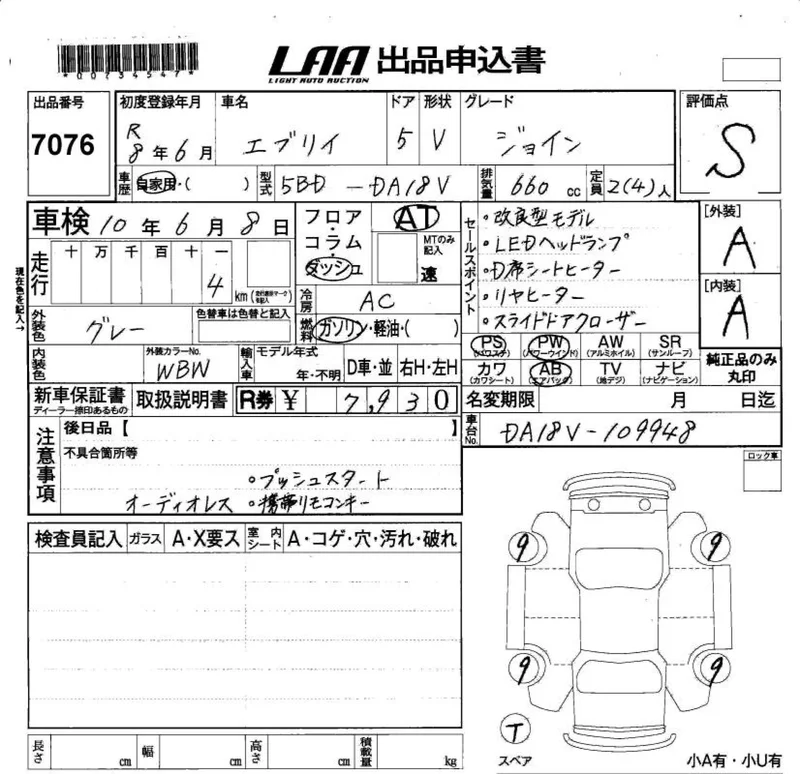 *00734547*
LAA 出品申込書
LIGHT AUTO AUCTION
出品番号 7076
初度登録年月 R8年6月
車名 エブリイ
ドア 5
形状 V
グレード ジョイン
評価点 S
車歴 自家用・( )
型式 5BD-DA18V
排気量 660cc
定員 2(4)人
車検 10年6月8日
フロア・コラム・ダッシュ
AT
MTのみ記入
速
セールスポイント
・改良型モデル
・LEDヘッドランプ
・D席シートヒーター
・リヤヒーター
・スライドドアクローザー
[外装] A
[内装] A
現在色を記入→
走行 十 万 千 百 十 一
4 km
冷房 AC
外装色 グレー
色替車は色替と記入
燃料 ガソリン・軽油・( )
PS (パワステ) PW (パワーウインド) AW (アルミホイル) SR (サンルーフ)
カワ (カワシート) AB (エアバック) TV (地デジ) ナビ (ナビゲーション)
純正品のみ丸印
内装色
外装カラーNo. WBW
輸入車 モデル年式 年・不明 D車・並 右H・左H
新車保証書 ディーラー捺印あるもの
取扱説明書
R券 ¥ 7,930
名変期限 月 日迄
車台No. DA18V-109948
注意事項
後日品【 】
不具合箇所等
・プッシュスタート
オーディオレス ・携帯リモコンキー
ロック車
検査員記入 ガラス A・X要ス 室内シート A・コゲ・穴・汚れ・破れ
9 9
9 9
T
スペア
小A有・小U有
長さ cm 幅 cm 高さ cm 積載量 kg